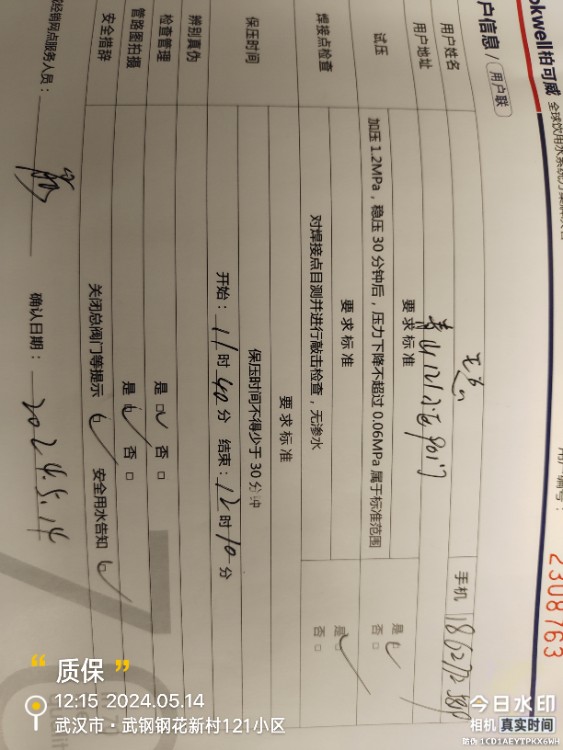 okwell柏可威
户信息/用户联
2308763
用户姓名
手机
用户地址
要求标准
试压
加压1.2MPa，稳压30分钟后，压力下降不超过0.06MPa属于标准范围
是
否
要求标准
焊接点检查
对焊接点目测并进行敲击检查，无渗水
是
否
要求标准
保压时间
保压时间不得少于30分钟
开始：11时40分 结束：12时10分
辨别真伪
检查管理
是 否
管路图拍摄
是 否
安全措辞
关闭总阀门等提示 安全用水告知
经销网点服务人员：
确认日期：2024.5.14
“质保”
12:15 2024.05.14
武汉市·武钢钢花新村121小区
今日水印
相机 真实时间
防伪 1CD1AEYTPKX6WH